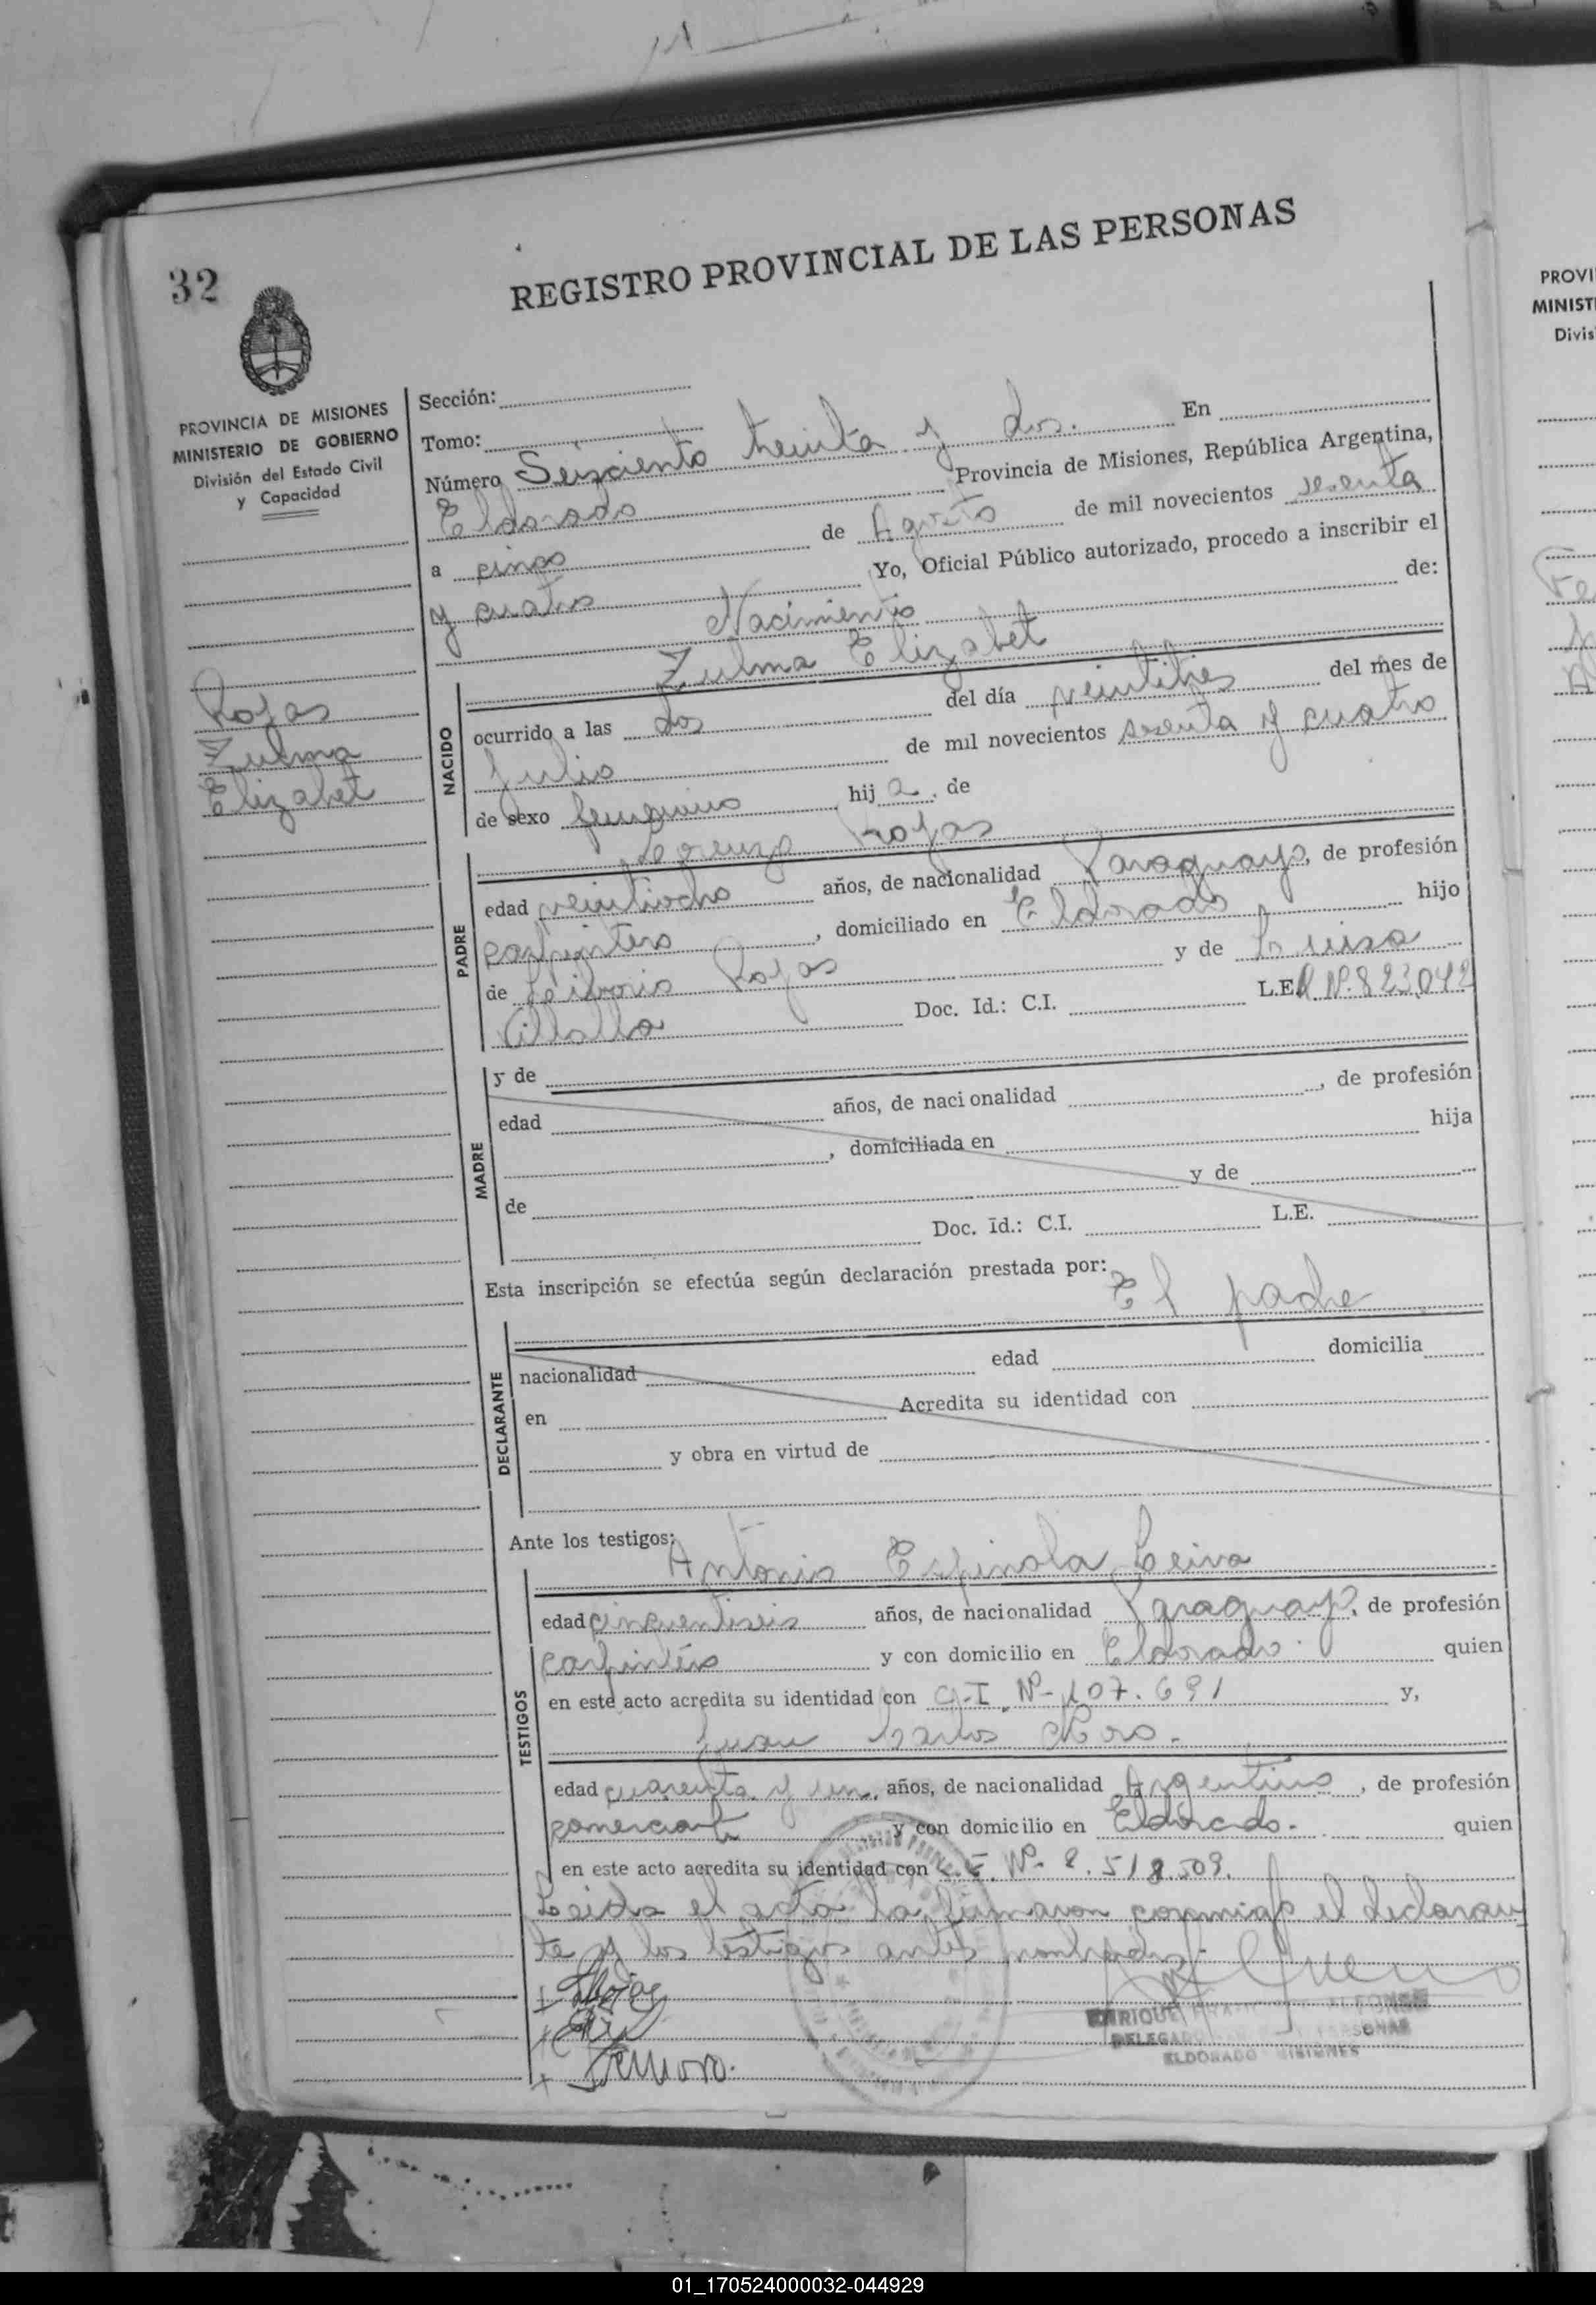 32
REGISTRO PROVINCIAL DE LAS PERSONAS
PROVINCIA DE MISIONES
MINISTERIO DE GOBIERNO
División del Estado Civil
y Capacidad
Rojas
Zulma
Elizabet
Sección:
Tomo:
Número Seisciento treinta y dos. En
Eldorado Provincia de Misiones, República Argentina,
a cinco de Agosto de mil novecientos sesenta
y cuatro Yo, Oficial Público autorizado, procedo a inscribir el
Nacimiento de:
Zulma Elizabet
NACIDO
ocurrido a las dos del día veintitres del mes de
Julio de mil novecientos sesenta y cuatro
de sexo femenino hija de
Lorenzo Rojas
PADRE
edad veintiocho años, de nacionalidad Paraguayo, de profesión
carpintero, domiciliado en Eldorado hijo
de Rojas y de Luisa
Villalba Doc. Id.: C.I. L.E. Nº 823.042
y de
MADRE
edad años, de nacionalidad , de profesión
, domiciliada en hija
de y de
Doc. Id.: C.I. L.E.
Esta inscripción se efectúa según declaración prestada por:
El padre
DECLARANTE
nacionalidad edad domicilia
en Acredita su identidad con
y obra en virtud de
Ante los testigos:
Antonio Espinola Leiva
TESTIGOS
edad cincuentiseis años, de nacionalidad Paraguayo, de profesión
carpintero y con domicilio en Eldorado. quien
en este acto acredita su identidad con C.I. Nº 107.691 y,
Juan Carlos Moro.
edad cuarenta y un años, de nacionalidad Argentino, de profesión
comerciante y con domicilio en Eldorado. quien
en este acto acredita su identidad con L.E. Nº 2.518.509.
Leida el acta la firmaron conmigo el declaran
te y los testigos antes nombrados.
ENRIQUE
DELEGADO PERSONAS
ELDORADO MISIONES
PROVI
MINIST
Divis
01_170524000032-044929